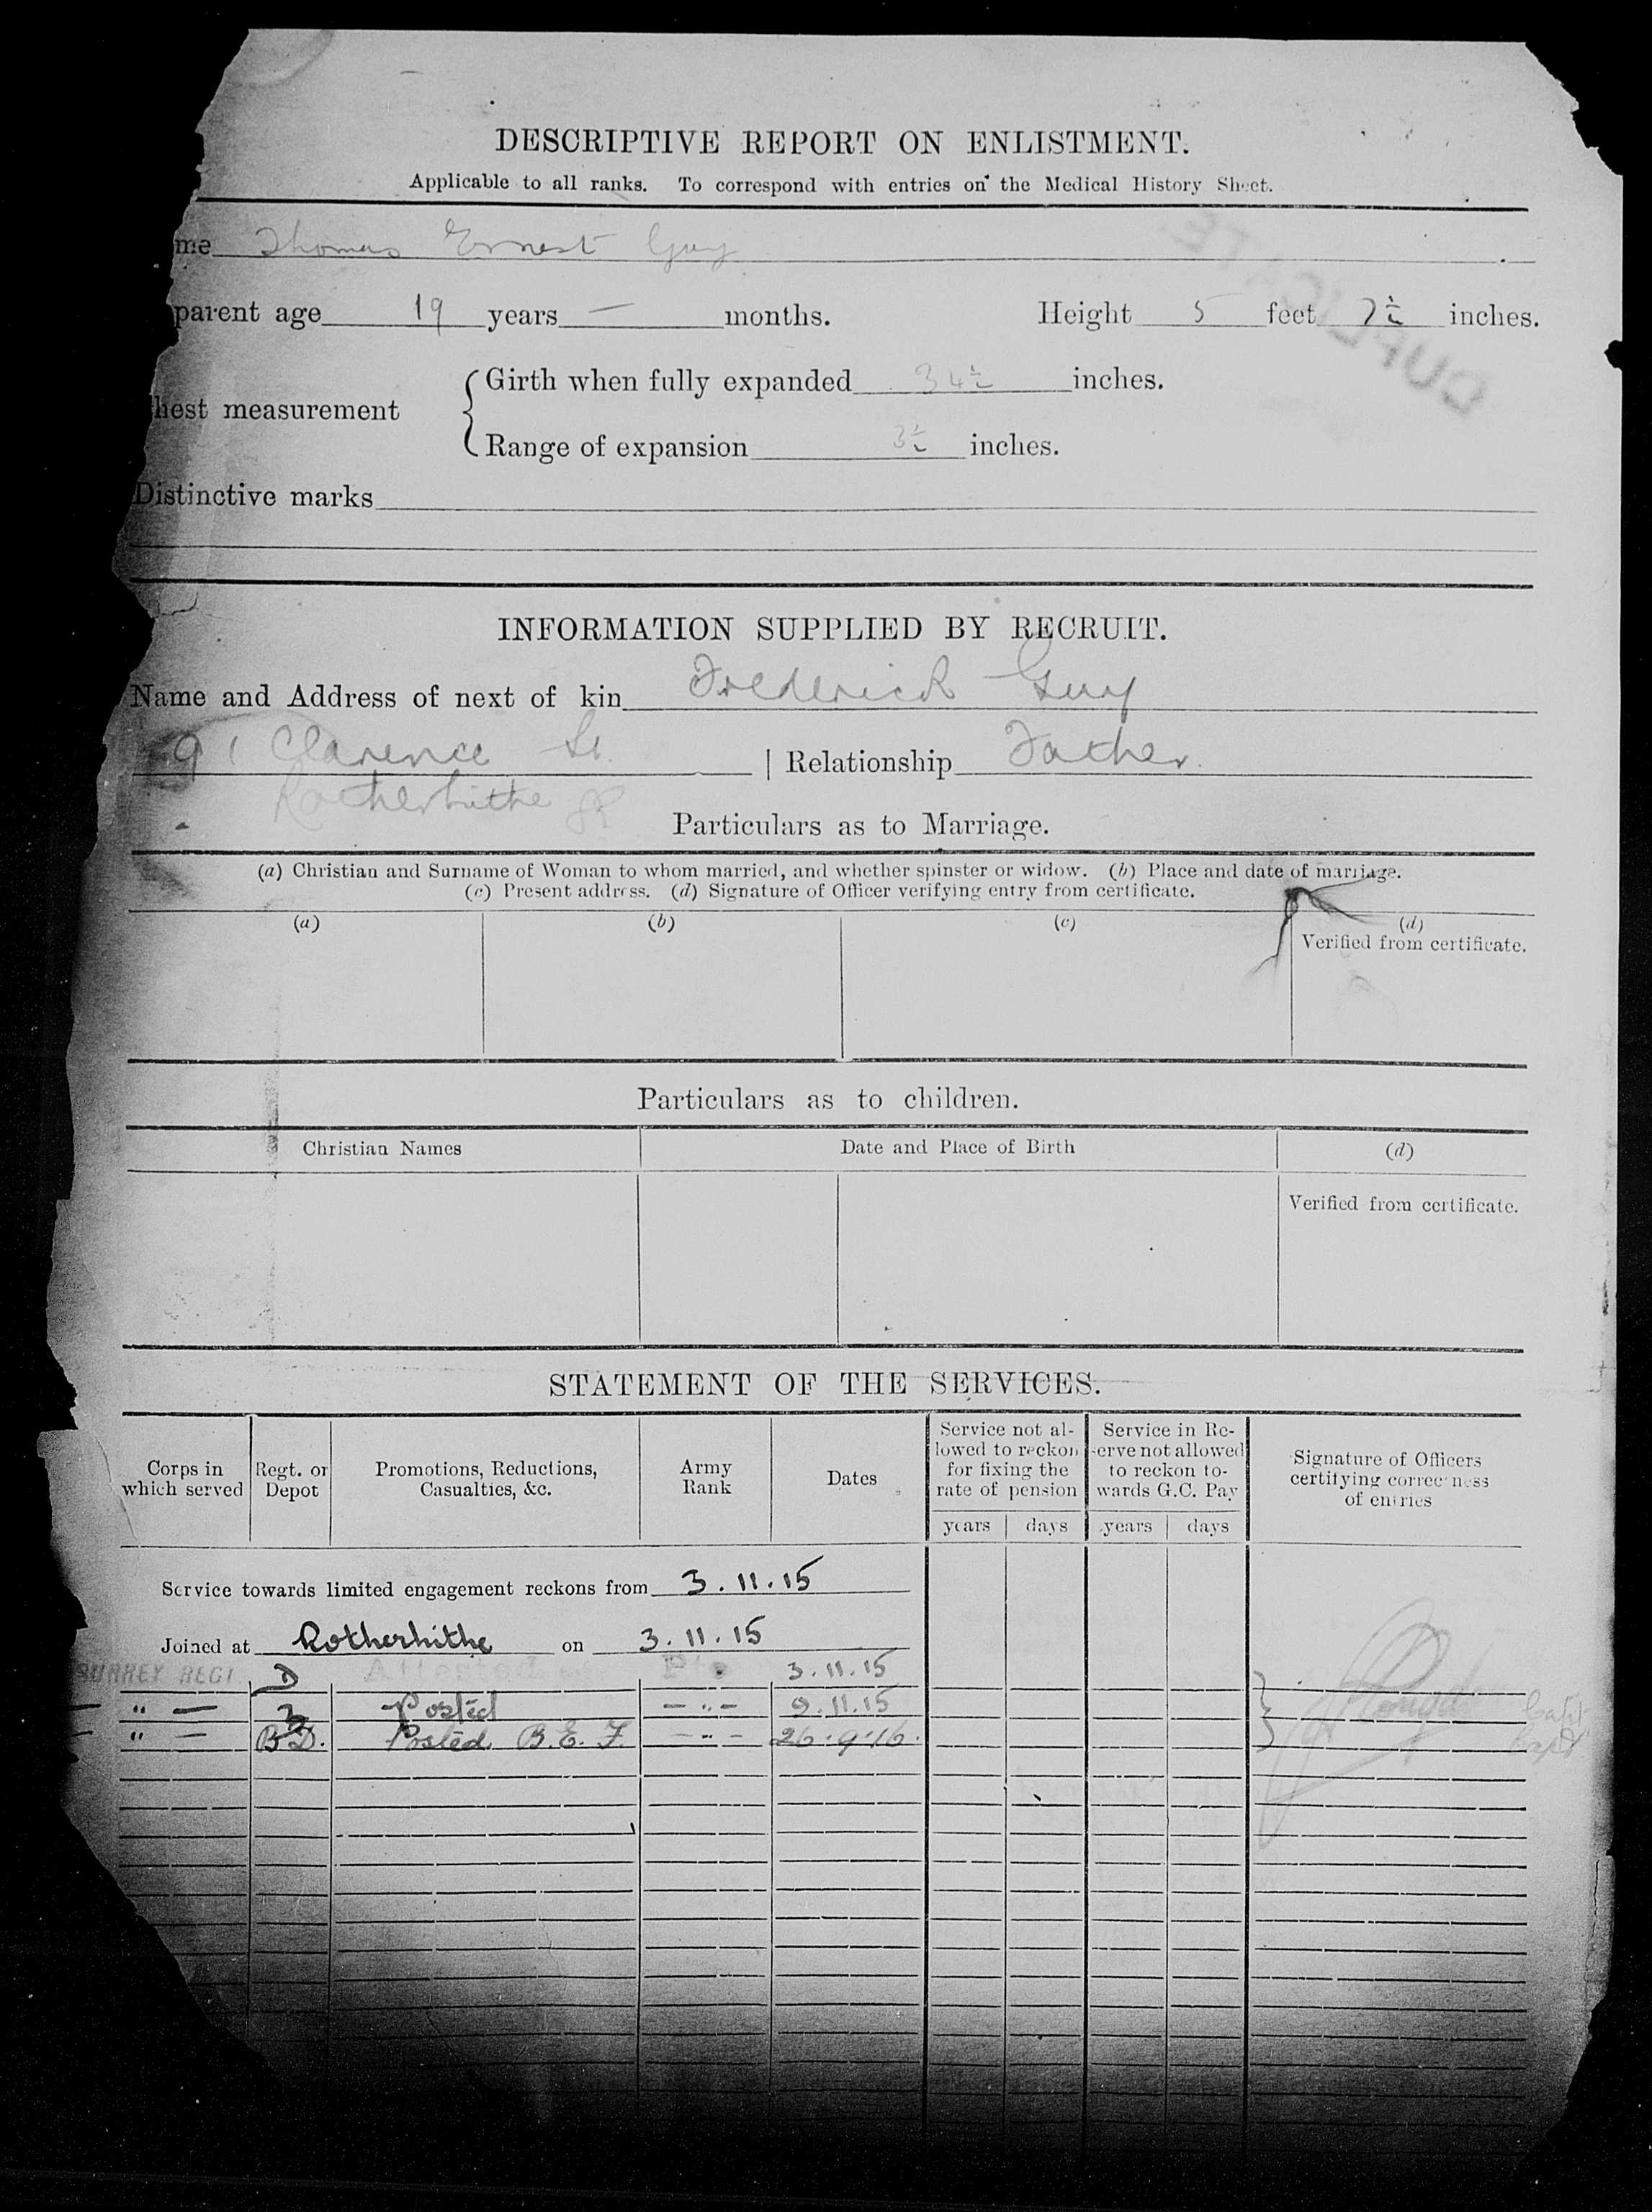 DESCRIPTIVE REPORT ON ENLISTMENT.
Applicable to all ranks. To correspond with entries on the Medical History Sheet.
me Thomas Ernest Guy
parent age 19 years — months. Height 5 feet 7½ inches.
Girth when fully expanded 34½ inches.
hest measurement
Range of expansion 3½ inches.
Distinctive marks
DUPLICATE
INFORMATION SUPPLIED BY RECRUIT.
Name and Address of next of kin Frederick Guy
91 Clarence St. | Relationship Father.
Rotherhithe
Particulars as to Marriage.
(a) Christian and Surname of Woman to whom married, and whether spinster or widow. (b) Place and date of marriage.
(c) Present address. (d) Signature of Officer verifying entry from certificate.
(a) (b) (c) (d)
Verified from certificate.
Particulars as to children.
Christian Names Date and Place of Birth (d)
Verified from certificate.
STATEMENT OF THE SERVICES.
Corps in which served Regt. or Depot Promotions, Reductions, Casualties, &c. Army Rank Dates Service not allowed to reckon for fixing the rate of pension Service in Reserve not allowed to reckon towards G.C. Pay Signature of Officers certifying correctness of entries
years days years days
Service towards limited engagement reckons from 3.11.15
Joined at Rotherhithe on 3.11.15
SURREY REGT D Attested Pte 3.11.15
" — 3 Posted — " — 9.11.15 Capt
" — BD. Posted B.E.F. — " — 26.9.16. Capt